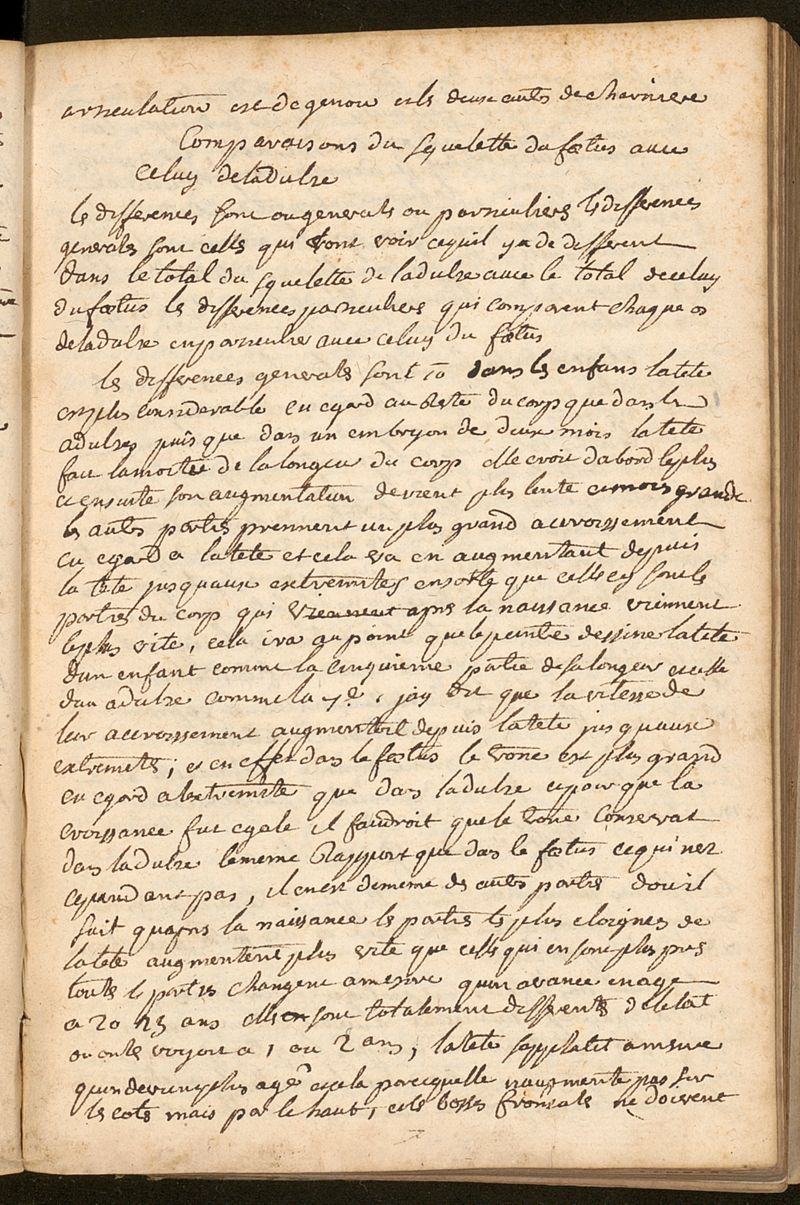 articulation est de genou et les deux autres de charniere
Comparaisons du squelette du fœtus avec
celuy de ladulte
les differences sont ou generales ou particulieres les differences
generales sont celles qui font voir cequil ya de different
dans le total du squelette de ladulte avec le total de celuy
du fœtus les differences particulieres qui comparent chaque os
de ladulte en particulier avec celuy du fœtus
les differences generales sont 1o dans les enfans la tete
est plus considerable eu egard au reste du corps que dans les
adultes puisque dans un embryon de deux mois la tete
fait la moitié de la longueur du corps elle croit dabord le plus
et ensuite son augmentation devient plus lente et mois grande
les autres parties prennent un plus grand accroissement
eu egard a la tete et cela va en augmentant depuis
la tete jusquaux extremites ensorte que celles cy sont les
parties du corp qui viennent apres la naissance viennent
le plus vite, cela iva au point que le peintre dessine la tete
dun enfant comme la cinquieme partie de sa longeur et celle
dun adulte comme la 7e. jay dit que la vitesse de
leur accroissement augmentoit depuis la tete jusquaux
extremites, et en effet dans le fœtus le tronc est plus grand
eu egard a lextremite que dans ladulte et pour que la
croissance fut egale il faudroit que le tronc conservat
dans ladulte le meme rapport que dans le fœtus ce qui nest
cependant pas, il en est de meme des autres parties dou il
suit quapres la naissance les parties les plus eloignes de
la tete augmentent plus vite que celles qui en sont plus pres
toutes les parties changent amesure quon avance en age
a 20 25 ans elles sont totalement differentes de letat
ou on les voyoit a 1 ou 2 ans, la tete sapplatit amesure
quon devient plus agé et cela parcequelle naugmente pas sur
les cotes mais par le haut, et les bosses frontales ne doivent